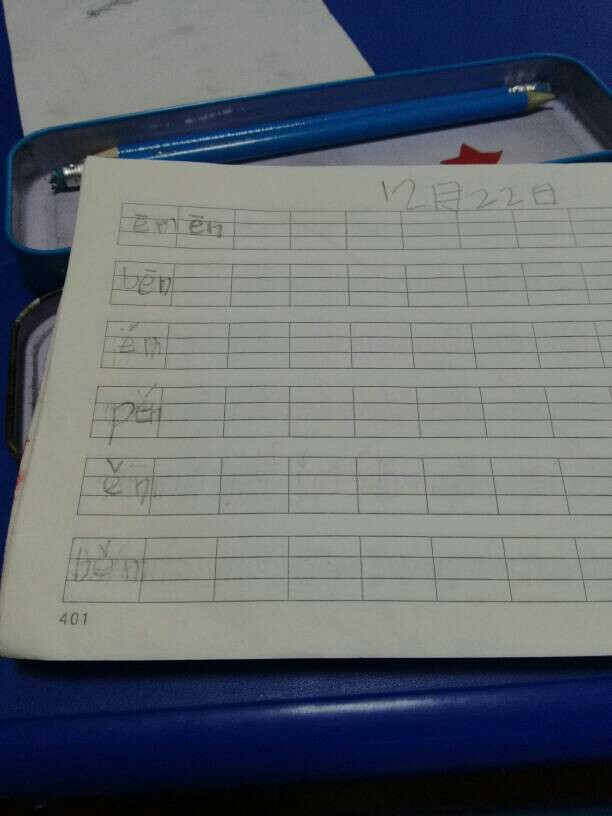 12月22日
ēm ēn
bēn
ém
pén
ěn
běn
401